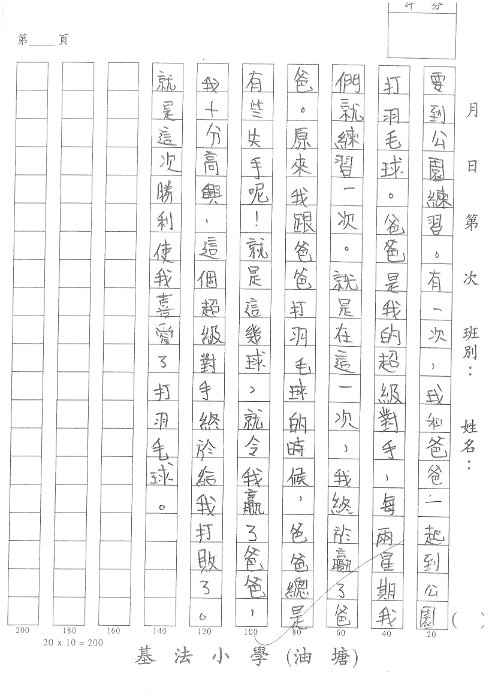 評 分
第 頁
月 日 第 次 班別： 姓名： ( )
要到公園練習。有一次，我和爸爸一起到公園
打羽毛球。爸爸是我的超級對手，每兩星期我
們就練習一次。就是在這一次，我終於贏了爸
爸。原來我跟爸爸打羽毛球的時候，爸爸總是
有些失手呢！就是這幾球，就令我贏了爸爸，
我十分高興，這個超級對手終於給我打敗了。
就是這次勝利使我喜愛了打羽毛球。
200 180 160 140 120 100 80 60 40 20
20 x 10 = 200
基法小學(油塘)